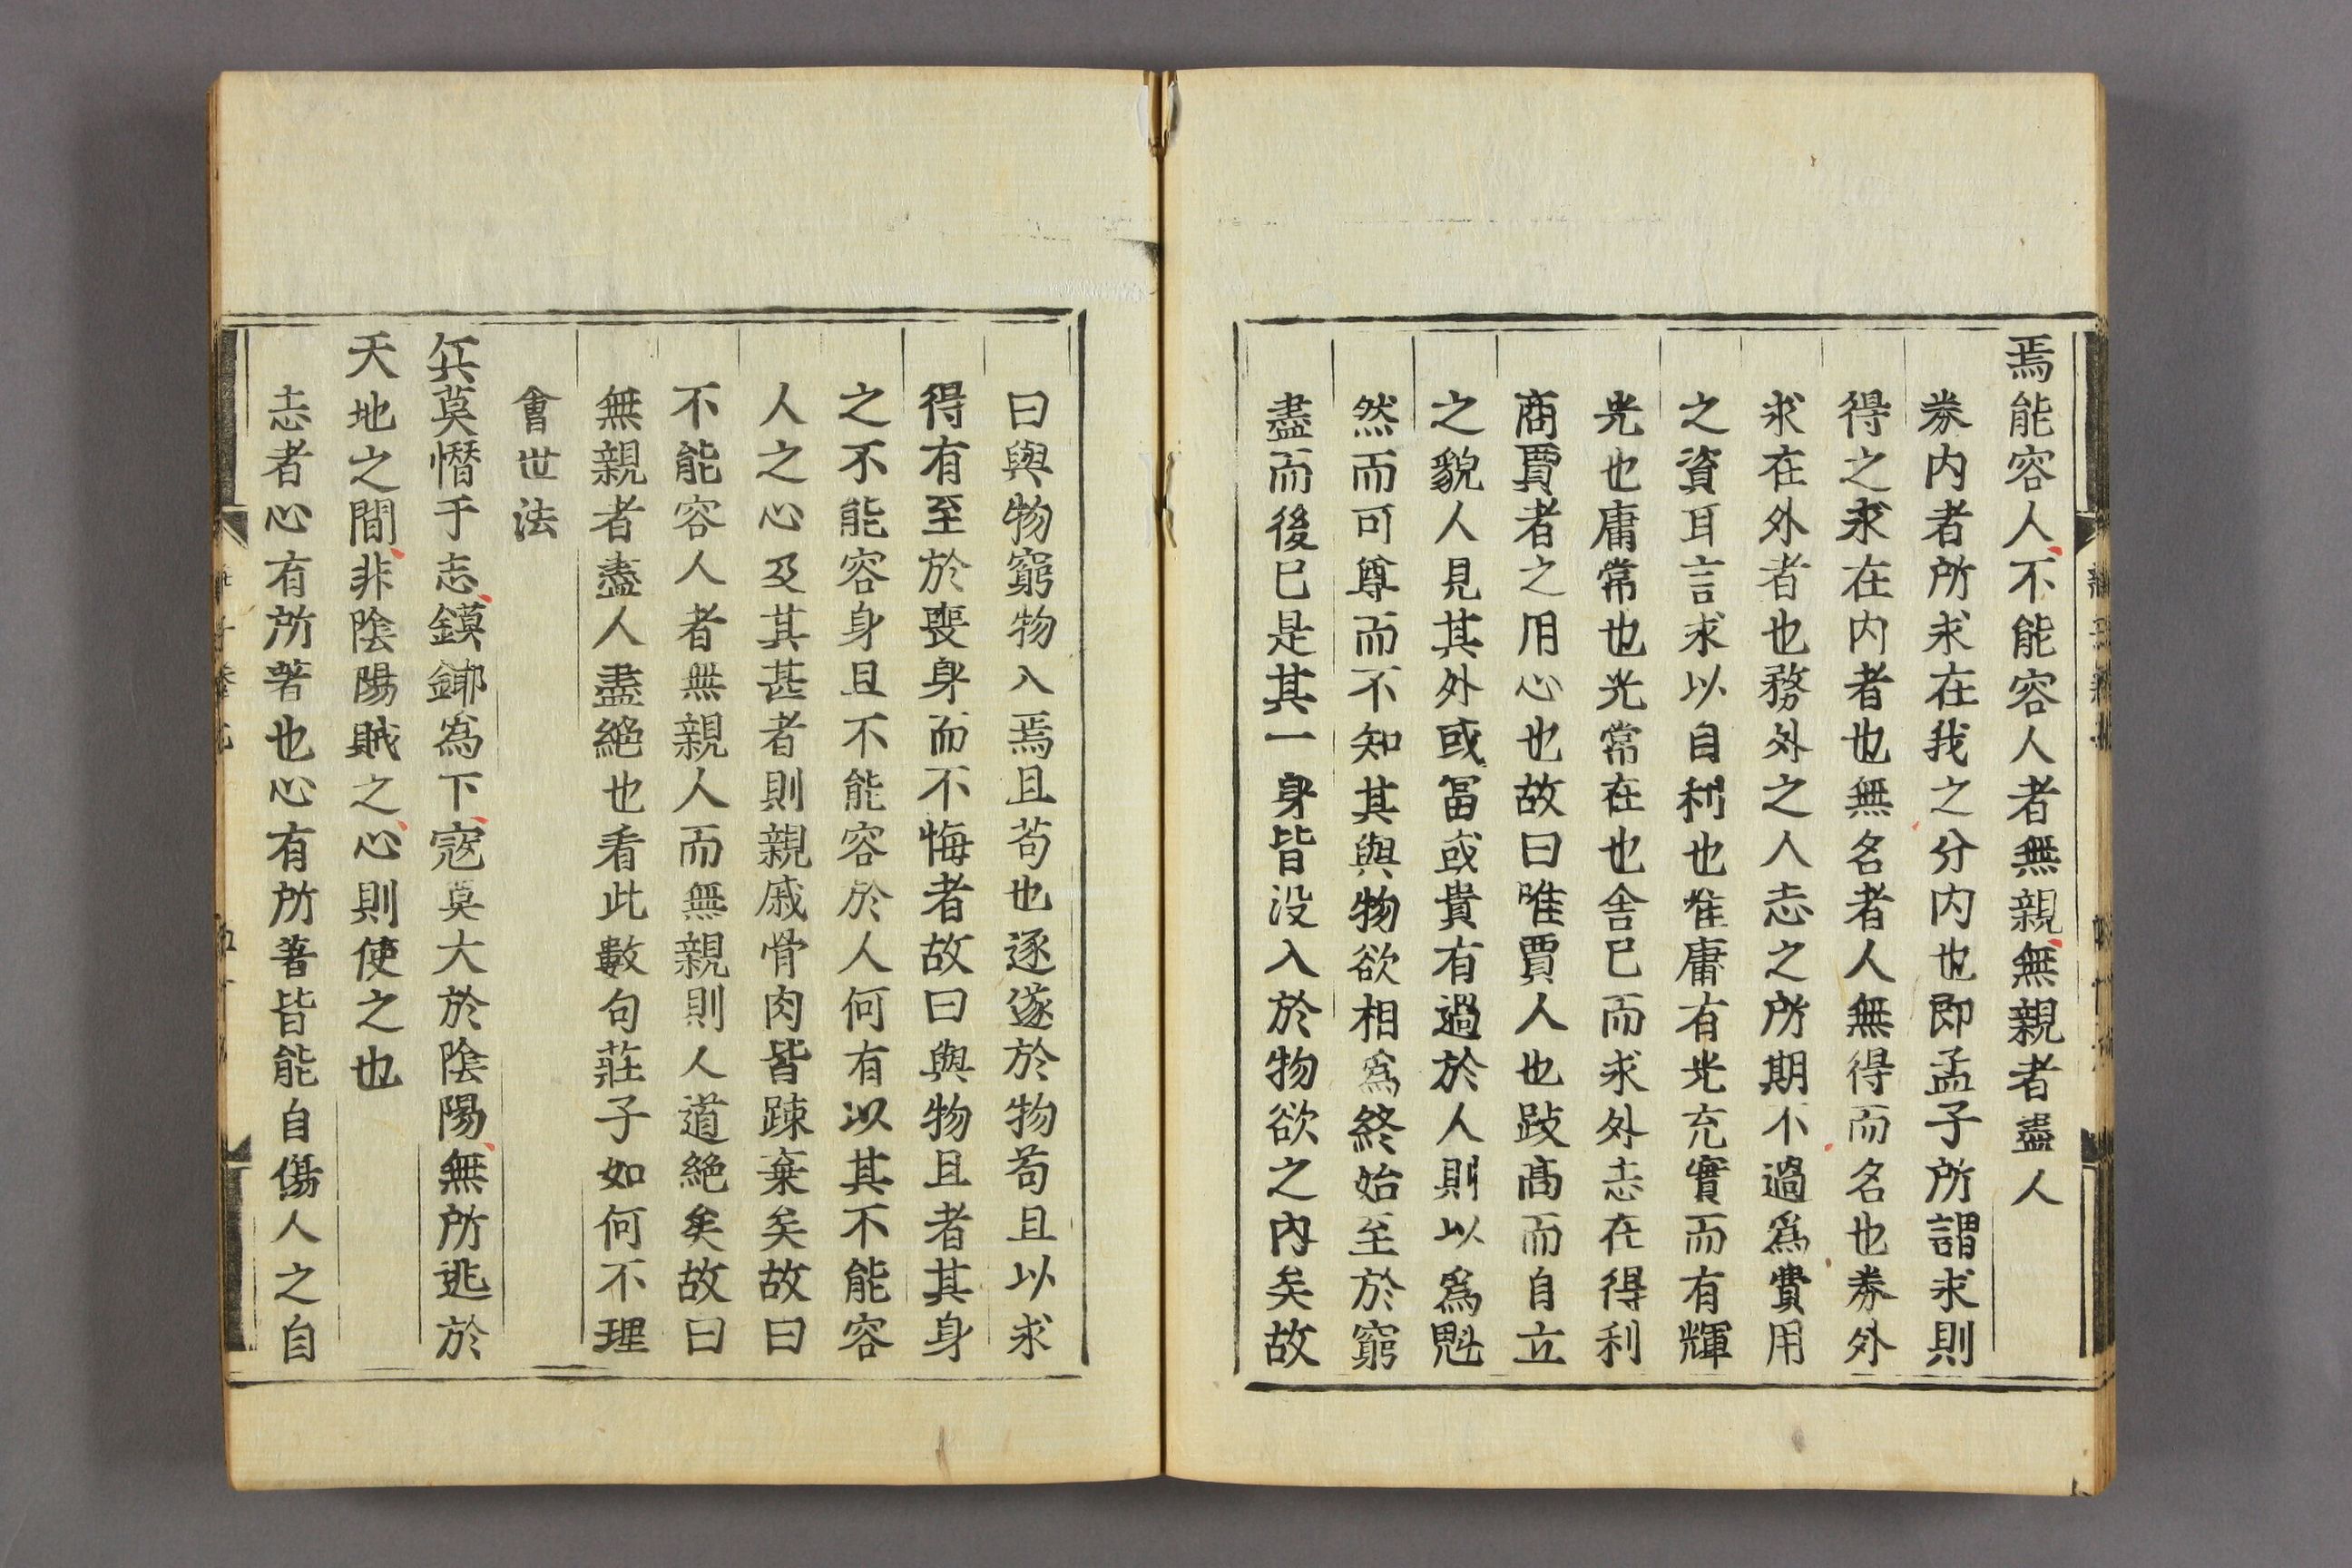 焉能容人不能容人者無親無親者盡人
券内者所求在我之分内也即孟子所謂求則
得之求在内者也無名者人無得而名也券外
求在外者也務外之人志之所期不過爲費用
之資耳言求以自利也惟庸有光充實而有輝
光也庸常也光常在也舍已而求外志在得利
商賈者之用心也故曰唯賈人也跂髙而自立
之貌人見其外或冨或貴有過於人則以爲魁
然而可尊而不知其與物欲相爲終始至於窮
盡而後已是其一身皆没入於物欲之内矣故
曰與物窮物入焉且苟也逐逐於物苟且以求
得有至於喪身而不悔者故曰與物且者其身
之不能容身且不能容於人何有以其不能容
人之心及其甚者則親戚骨肉皆踈棄矣故曰
不能容人者無親人而無親則人道絶矣故曰
無親者盡人盡絶也看此數句莊子如何不理
會世法
兵莫憯于志鏌鋣爲下寇莫大於陰陽無所逃於
天地之間非陰陽賊之心則使之也
志者心有所著也心有所著皆能自傷人之自